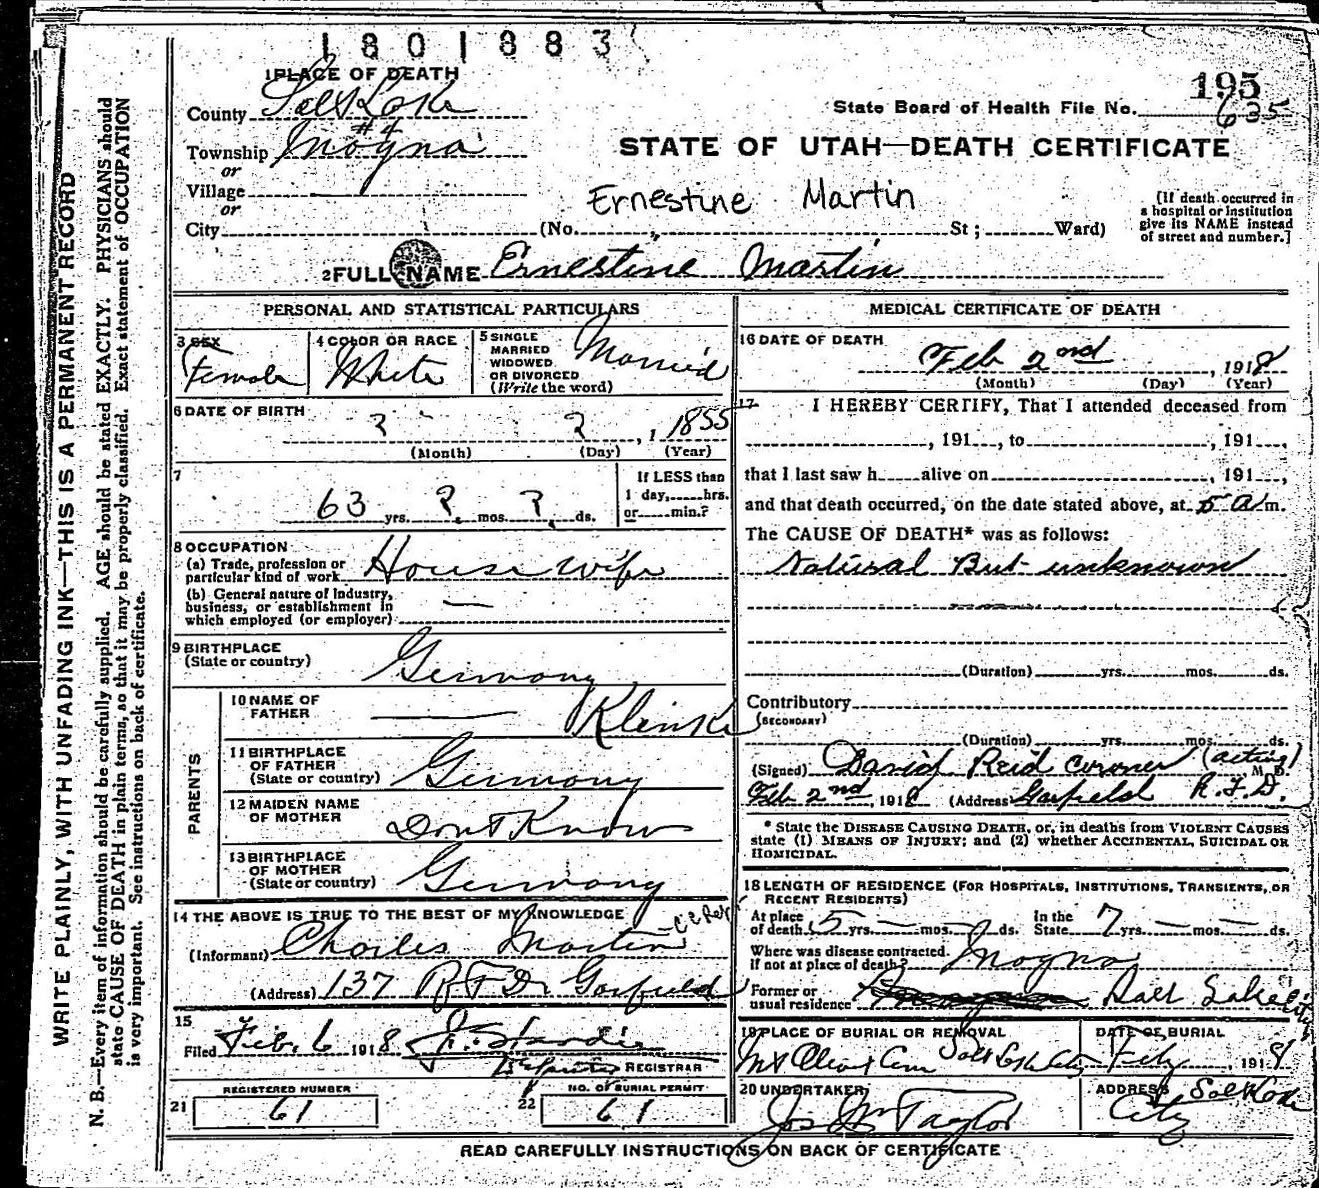 1801883
195
1 PLACE OF DEATH
County Salt Lake
State Board of Health File No. 635
#4
Township Magna
STATE OF UTAH—DEATH CERTIFICATE
or
Village
or
Ernestine Martin
City (No. St; Ward)
[If death occurred in a hospital or institution give its NAME instead of street and number.]
2 FULL NAME Ernestine Martin
PERSONAL AND STATISTICAL PARTICULARS
3 SEX Female
4 COLOR OR RACE White
5 SINGLE MARRIED WIDOWED OR DIVORCED (Write the word) Married
6 DATE OF BIRTH
? ? , 1 1855
(Month) (Day) (Year)
7
63 yrs. ? mos. ? ds.
If LESS than 1 day, hrs. or min.?
8 OCCUPATION
(a) Trade, profession or particular kind of work House wife
(b) General nature of Industry, business, or establishment in which employed (or employer) —
9 BIRTHPLACE
(State or country) Germany
PARENTS
10 NAME OF FATHER — Klenke
11 BIRTHPLACE OF FATHER (State or country) Germany
12 MAIDEN NAME OF MOTHER Dont Know
13 BIRTHPLACE OF MOTHER (State or country) Germany
14 THE ABOVE IS TRUE TO THE BEST OF MY KNOWLEDGE
(Informant) Charles Martin
(Address) 137 RFD Garfield
15
Filed Feb. 6 1918
REGISTRAR
REGISTERED NUMBER
21 61
NO. OF BURIAL PERMIT
22 61
MEDICAL CERTIFICATE OF DEATH
16 DATE OF DEATH
Feb 2nd , 1918
(Month) (Day) (Year)
17 I HEREBY CERTIFY, That I attended deceased from
, 191 , to , 191 ,
that I last saw h alive on , 191 ,
and that death occurred, on the date stated above, at 5 a m.
The CAUSE OF DEATH* was as follows:
Natural But unknown
(Duration) yrs. mos. ds.
Contributory
(SECONDARY)
(Duration) yrs. mos. ds.
(Signed) David Reid Coroner (acting) M. D.
Feb 2nd, 1918 (Address) Garfield R.F.D.
* State the DISEASE CAUSING DEATH, or, in deaths from VIOLENT CAUSES
state (1) MEANS OF INJURY; and (2) whether ACCIDENTAL, SUICIDAL OR
HOMICIDAL.
18 LENGTH OF RESIDENCE (FOR HOSPITALS, INSTITUTIONS, TRANSIENTS, OR
RECENT RESIDENTS)
At place of death 5 yrs. — mos. ds. In the State 7 yrs. — mos. — ds.
Where was disease contracted. If not at place of death? Magna
Former or usual residence Salt Lake City
19 PLACE OF BURIAL OR REMOVAL
Mt Olivet Cem Salt Lake City
DATE OF BURIAL
Feb , 1918
20 UNDERTAKER
Jos Wm Taylor
ADDRESS Salt Lake
City
READ CAREFULLY INSTRUCTIONS ON BACK OF CERTIFICATE
WRITE PLAINLY, WITH UNFADING INK—THIS IS A PERMANENT RECORD
N. B.—Every item of information should be carefully supplied. AGE should be stated EXACTLY. PHYSICIANS should
state CAUSE OF DEATH in plain terms, so that it may be properly classified. Exact statement of OCCUPATION
is very important. See instructions on back of certificate.